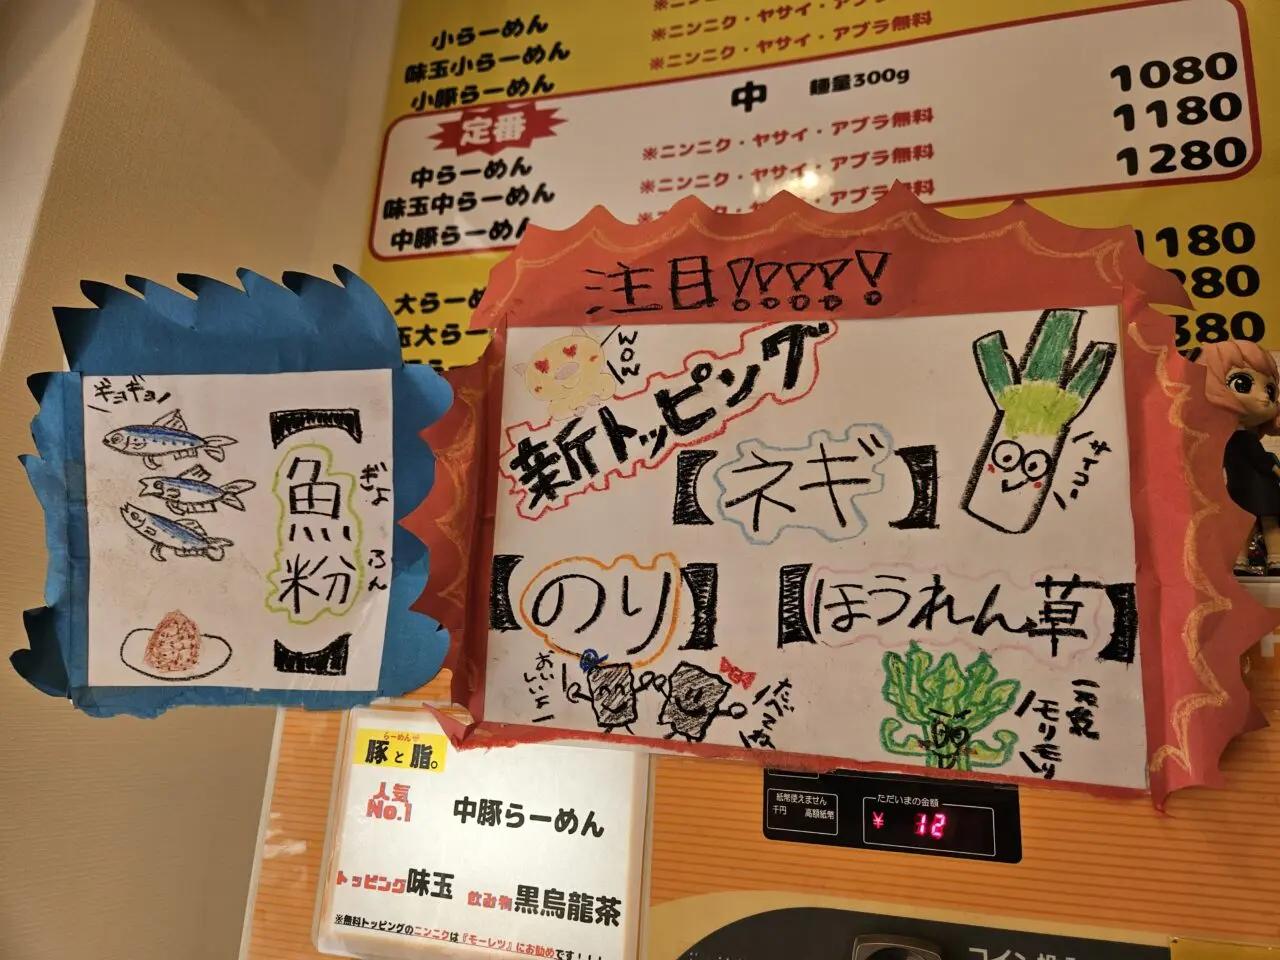 小らーめん
味玉小らーめん ※ニンニク・ヤサイ・アブラ無料
小豚らーめん ※ニンニク・ヤサイ・アブラ無料
定番
中 麺量300g
中らーめん ※ニンニク・ヤサイ・アブラ無料 1080
味玉中らーめん ※ニンニク・ヤサイ・アブラ無料 1180
中豚らーめん ※ニンニク・ヤサイ・アブラ無料 1280
大らーめ 1180
玉大らー 280
380
注目!!!!!
新トッピング
WOW
【ネギ】
サイコー
【のり】
おいしいよー
たべてね
【ほうれん草】
元気モリモリ
ギョギョ
【魚粉】
ぎょ ふん
らーめん
豚と脂。
人気
No.1
中豚らーめん
トッピング味玉 飲み物黒烏龍茶
※無料トッピングのニンニクは『モーレツ』にお勧めです!!!
紙幣使えません
千円 高額紙幣
ただいまの金額
¥ 12